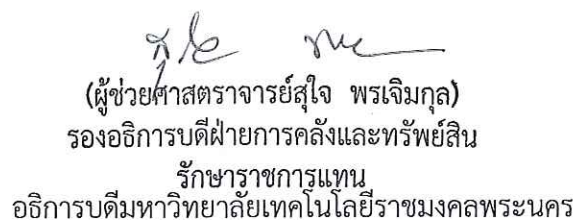 (ผู้ช่วยศาสตราจารย์สุใจ  พรเจิมกุล)
รองอธิการบดีฝ่ายการคลังและทรัพย์สิน
รักษาราชการแทน
อธิการบดีมหาวิทยาลัยเทคโนโลยีราชมงคลพระนคร